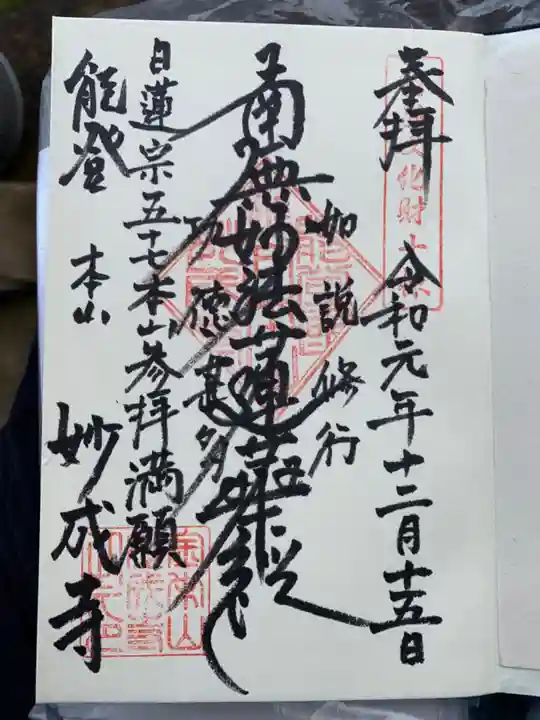 奉拝
令和元年十二月十五日
文化財
如説修行
南無妙法蓮華経
功徳甚多
日蓮宗五十七本山参拝満願
能登 本山 妙成寺